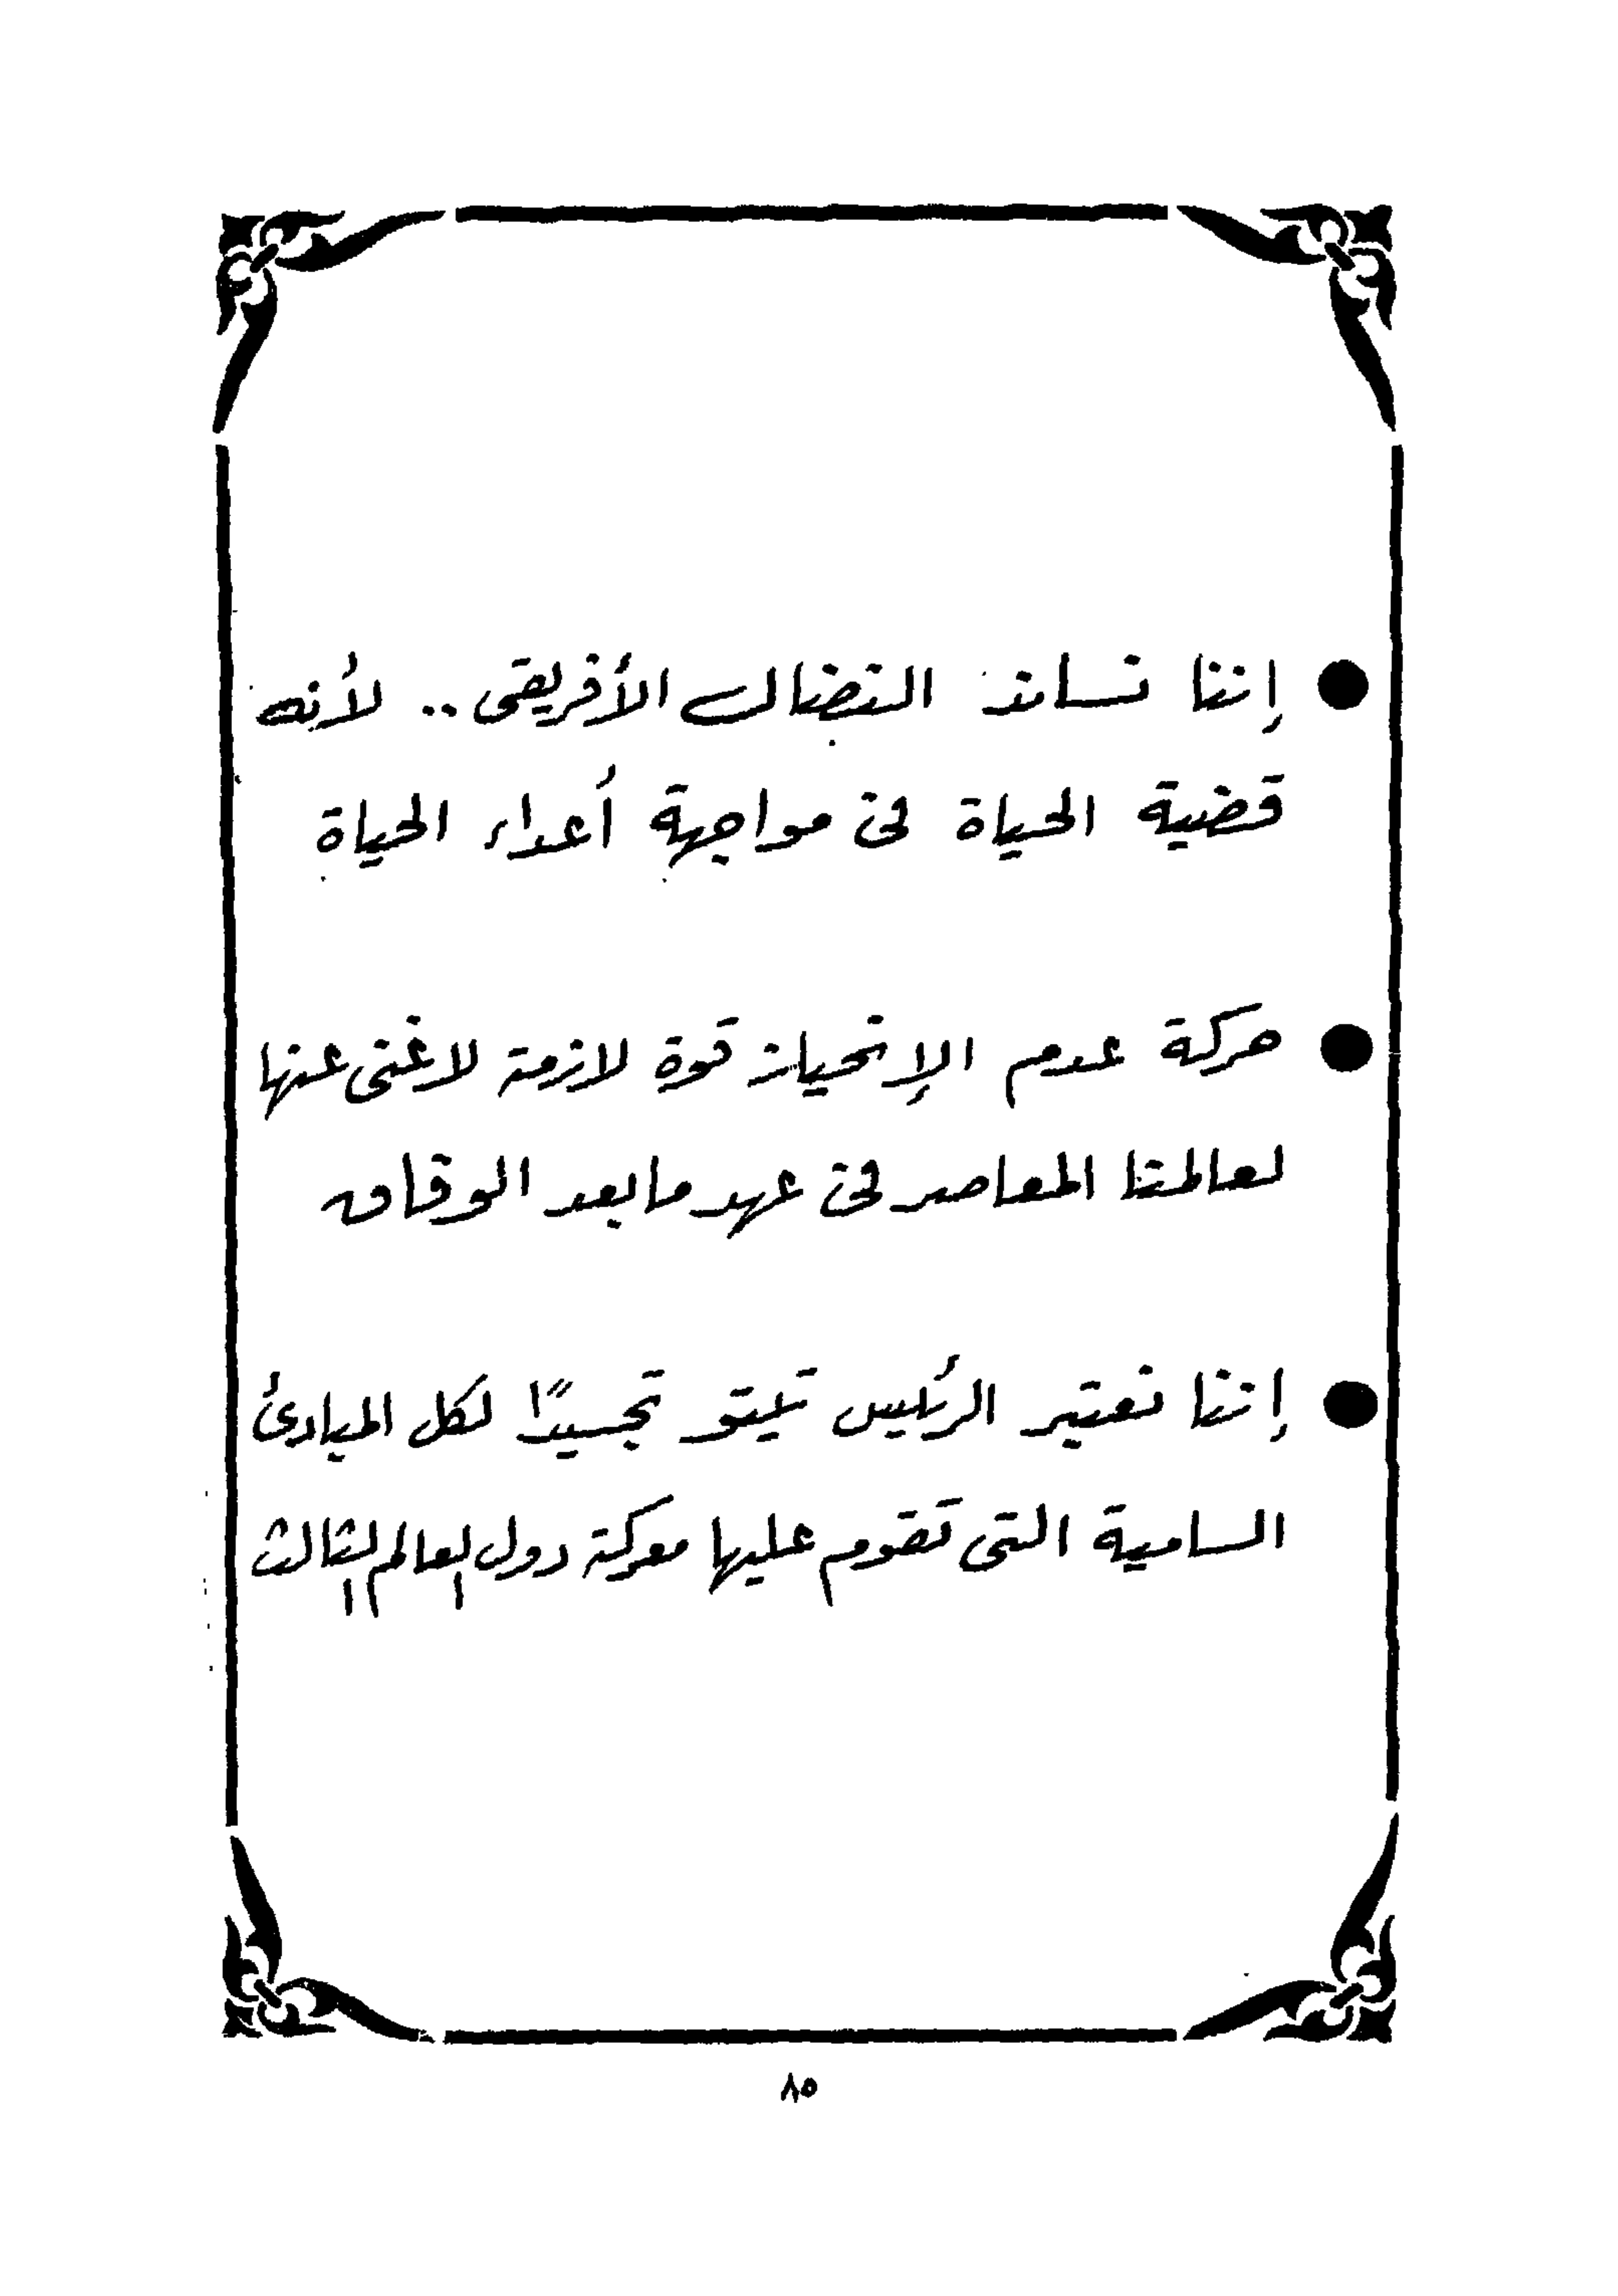 ● إننا نساند النضال الأفريقى .. لأنه
قضية الحياة فى مواجهة أعداء الحياة
● حركة عدم الإنحياز قوة لازمة لاغنى عنها
لعالمنا المعاصر فى عهد ما بعد الوفاق
● إننا نعتبر الرئيس تيتو تجسيدًا لكل المبادئ
السامية التى تقوم عليها معركة دول العالم الثالث
٨٥